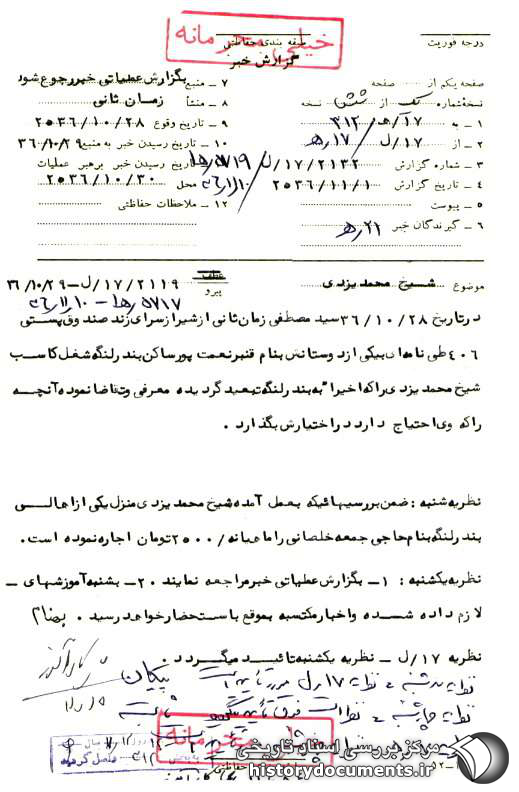 خیلی محرمانه
درجه فوریت
طبقه بندی حفاظتی
گزارش خبر
صفحه یکم از صفحه
نسخه شماره یک از شش نسخه
۱ - به ۳۱۲/ﻫ/۱۷
۲ - از ۱۷/ل
۳ - شماره گزارش ۲۱۳۲/۱۷/ل
۴ - تاریخ گزارش ۲۵۳۶/۱۱/۱
۵ - پیوست
۶ - گیرندگان خبر ۲۱ ﻫ
۷ - منبع بگزارش عملیاتی خبر رجوع شود
۸ - منشأ زمان ثانی
۹ - تاریخ وقوع ۲۵۳۶/۱۰/۲۸
۱۰ - تاریخ رسیدن خبر به منبع ۳۶/۱۰/۲۹
تاریخ رسیدن خبر برهبر عملیات
محل ۲۵۳۶/۱۰/۳۰
۱۲ - ملاحظات حفاظتی
موضوع شیخ محمد یزدی
عطف
پیرو
۲۱۱۹/۱۷/ل - ۳۶/۱۰/۲۹
در تاریخ ۳۶/۱۰/۲۸ سید مصطفی زمان ثانی از شیراز سرای زند صندوق پستی
۴۰۶ طی نامه ای بیکی از دوستانش بنام قنبر نعمت پور ساکن بندر لنگه شغل کاسب
شیخ محمد یزدی را که اخیرا" به بندر لنگه تبعید گردیده معرفی و تقاضا نموده آنچه
را که وی احتیاج دارد در اختیارش بگذارد .
نظریه شنبه : ضمن بررسیهائیکه بعمل آمده شیخ محمد یزدی منزل یکی از اهالی
بندر لنگه بنام حاجی جمعه خلصانی را ماهیانه /۲۵۰۰ تومان اجاره نموده است.
نظریه یکشنبه : ۱- بگزارش عملیاتی خبر مراجعه نمایند ۲۰- بشنبه آموزشهای -
لازم داده شده و اخبار مکتسبه بموقع باستحضار خواهد رسید .
نظریه ۱۷/ل - نظریه یکشنبه تائید میگردد .
نظریه سه شنبه = نظریه ۱۷/ل مورد تایید است پیکان
نظریه چهارشنبه = نظرات فوق تایید میگردد
خیلی محرمانه
مرکز بررسی اسناد تاریخی
historydocuments.ir